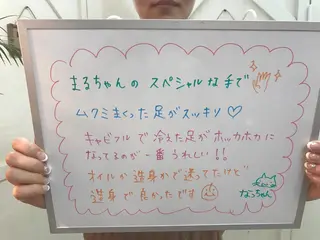 まるちゃんの スペシャルな手で
ムクミまくった足がスッキリ♡
キャビフルで冷えた足がホッカホカに
なってるのが一番うれしい!!
オイルか遊身かで迷ってたけど
遊身で良かったです
なっちゃん